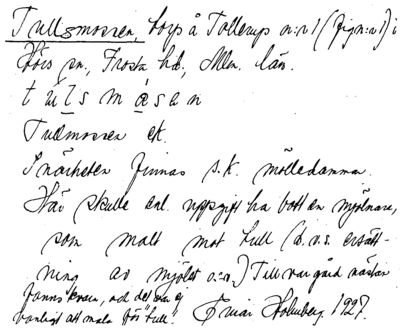 Tullsmossen, torp å Tollerup n:r 1 (fig n:r 1) i
Hörs sn., Frosta hd, Mlm. län.
túlsmåsen
Tullmossen ek.
I närheten finnas s.k. mölledammar.
Här skulle enl. uppgift ha bott en mjölnare,
som malt mot tull (d.v.s. ersätt-
ning av mjölet o.s.v.) Till var gård nästan
fanns kvarn, och det var ej
vanligt att mala för "tull". Holmberg 1927.